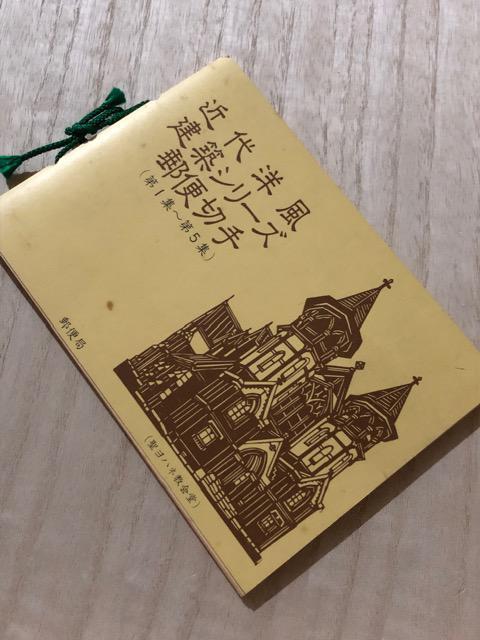 近代洋風
建築シリーズ
郵便切手
(第1集～第5集)
郵便局
(聖ヨハネ教会堂)